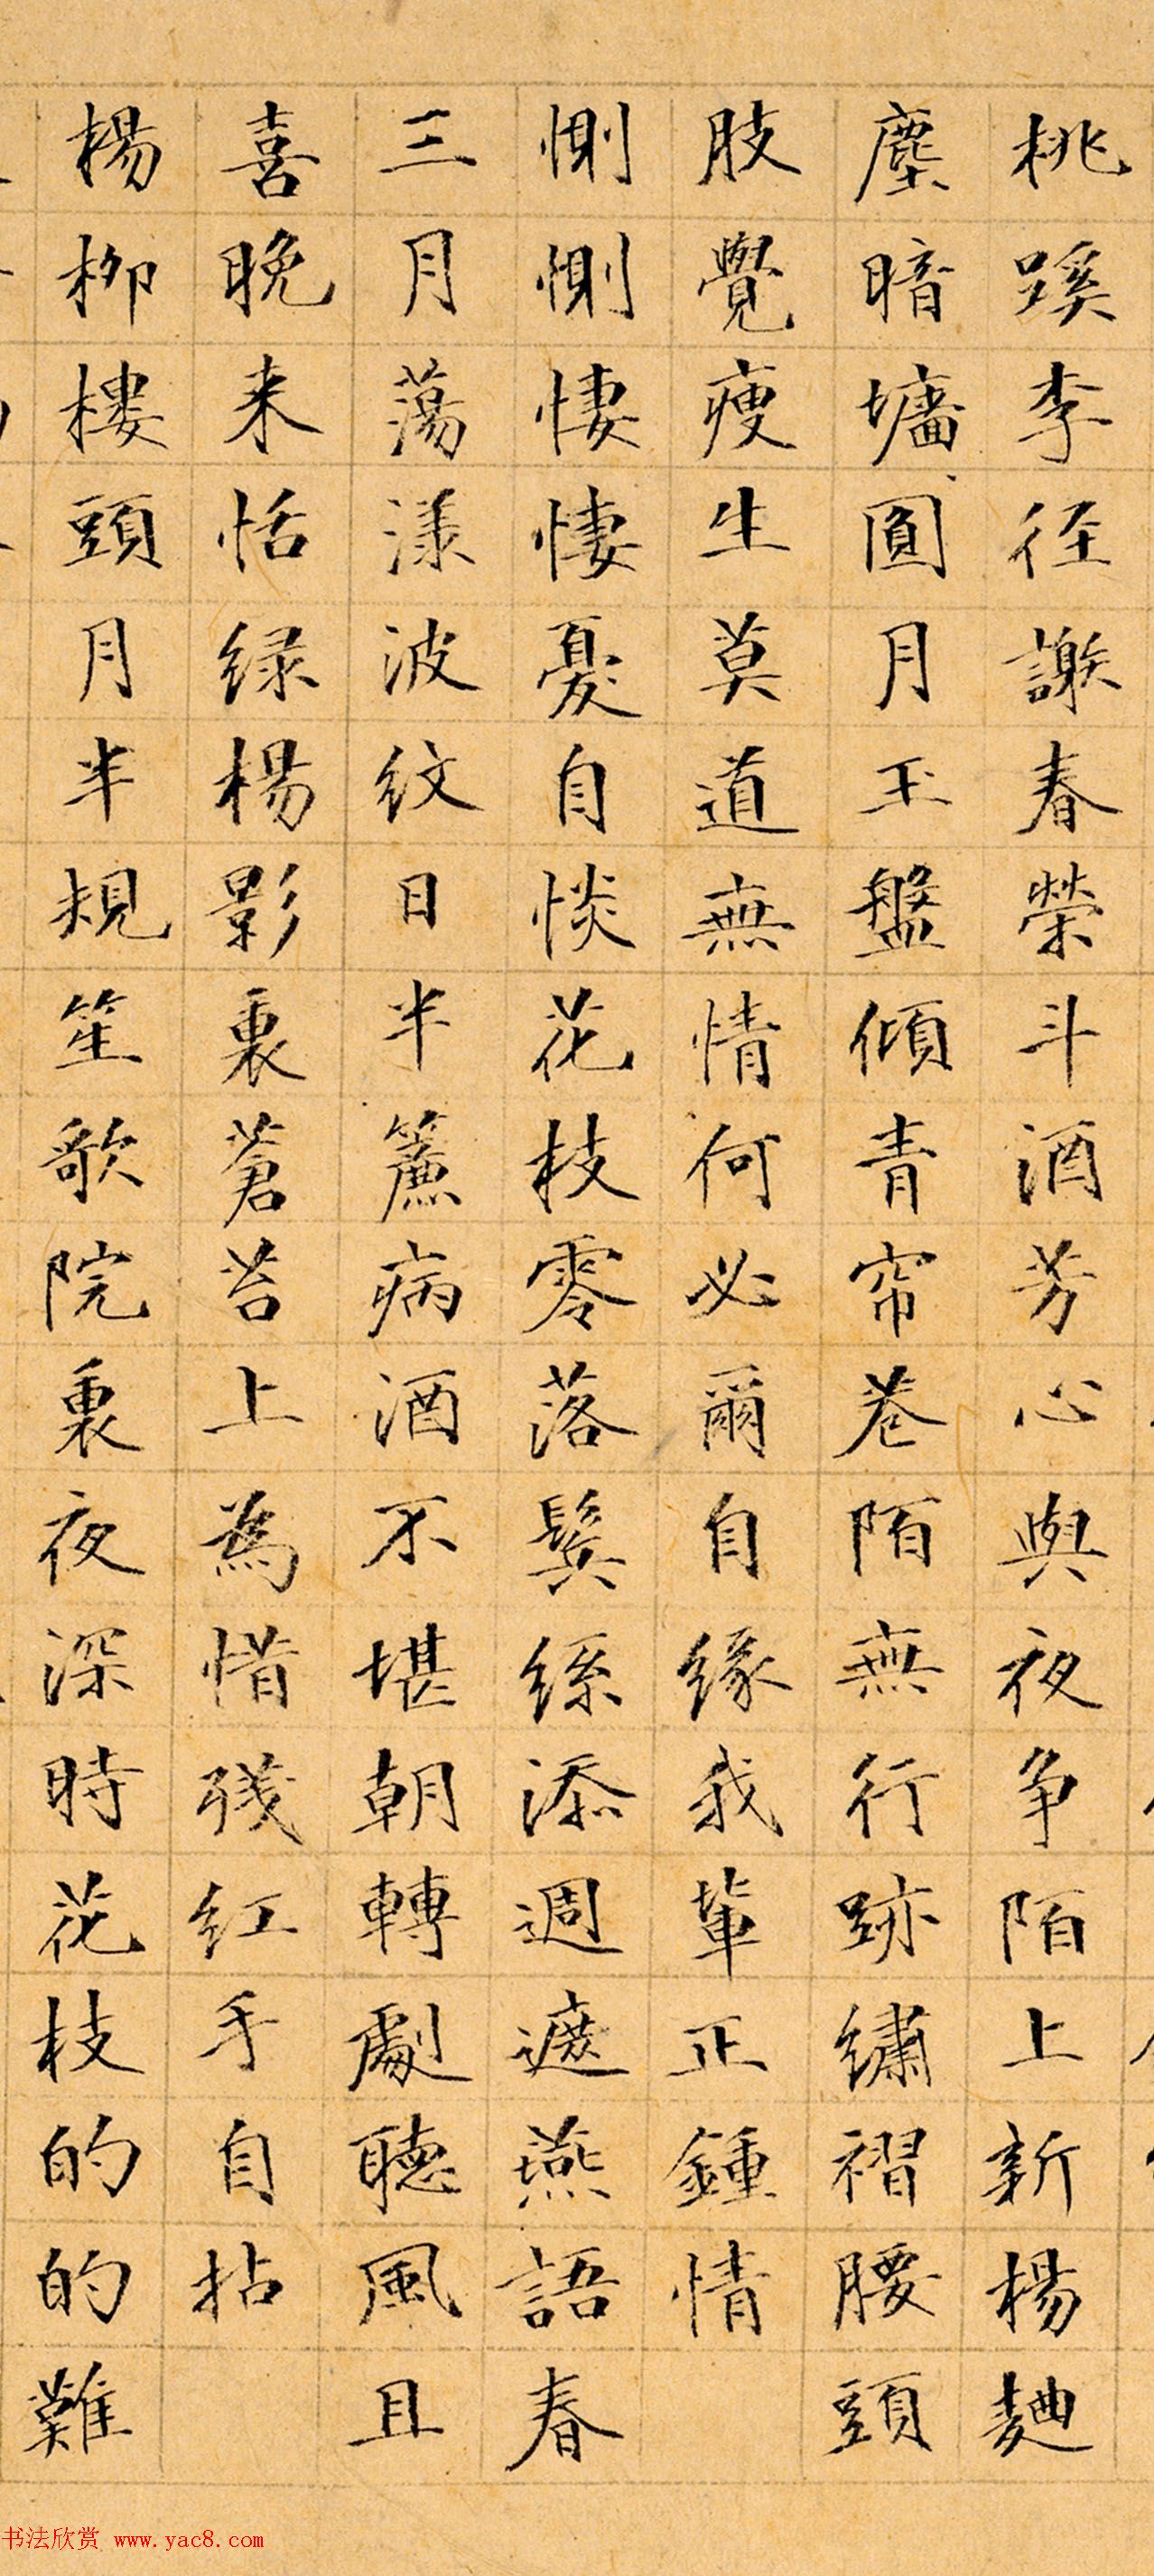 桃蹊李徑謝春榮斗酒芳心與夜争陌上新楊麯
塵暗墻圓月玉盤傾青帘巷陌無行跡繡褶腰頭
肢覺瘦生莫道無情何必爾自緣我輩正鍾情
惻惻悽悽憂自惔花枝零落鬓絲添週遮燕語春
三月蕩漾波紋日半簾病酒不堪朝轉劇聽風且
喜晚来恬绿楊影裏蒼苔上為惜殘紅手自拈
楊柳樓頭月半規笙歌院裏夜深時花枝的的難
书法欣赏 www.yac8.com